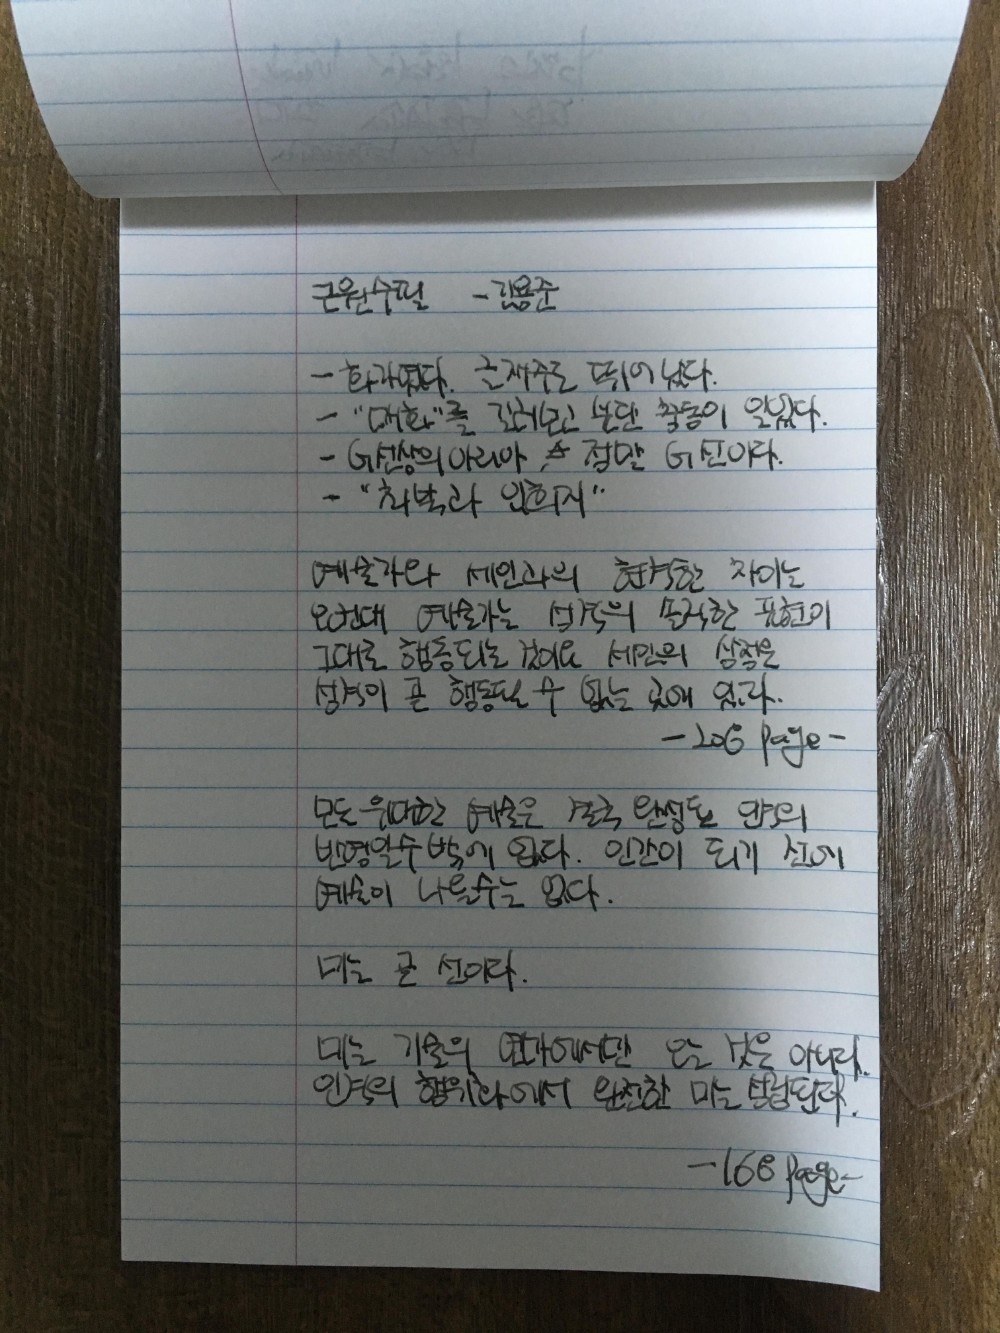 근원수필 - 김용준
- 화가였다. 글재주도 뛰어났다.
- "매화"를 길레 분단 충동이 일었다.
- G선상의 아리아 정말 G선이다.
- "최북과 임희지"
예술가와 세인과의 현격한 차이는
요컨대 예술가는 성격의 솔직한 표현이
그대로 행동되는 것이요 세인의 상정은
성격이 곧 행동될 수 없는 곳에 있다.
- 206 page -
모든 위대한 예술은 결국 완성된 인격의
반영일수 밖에 없다. 인간이 되기 전에
예술이 나올수는 없다.
미는 곧 선이다.
미는 기술의 연마에서만 오는 것은 아니다.
인격의 행위화에서 완전한 미는 성립된다.
- 166 page -